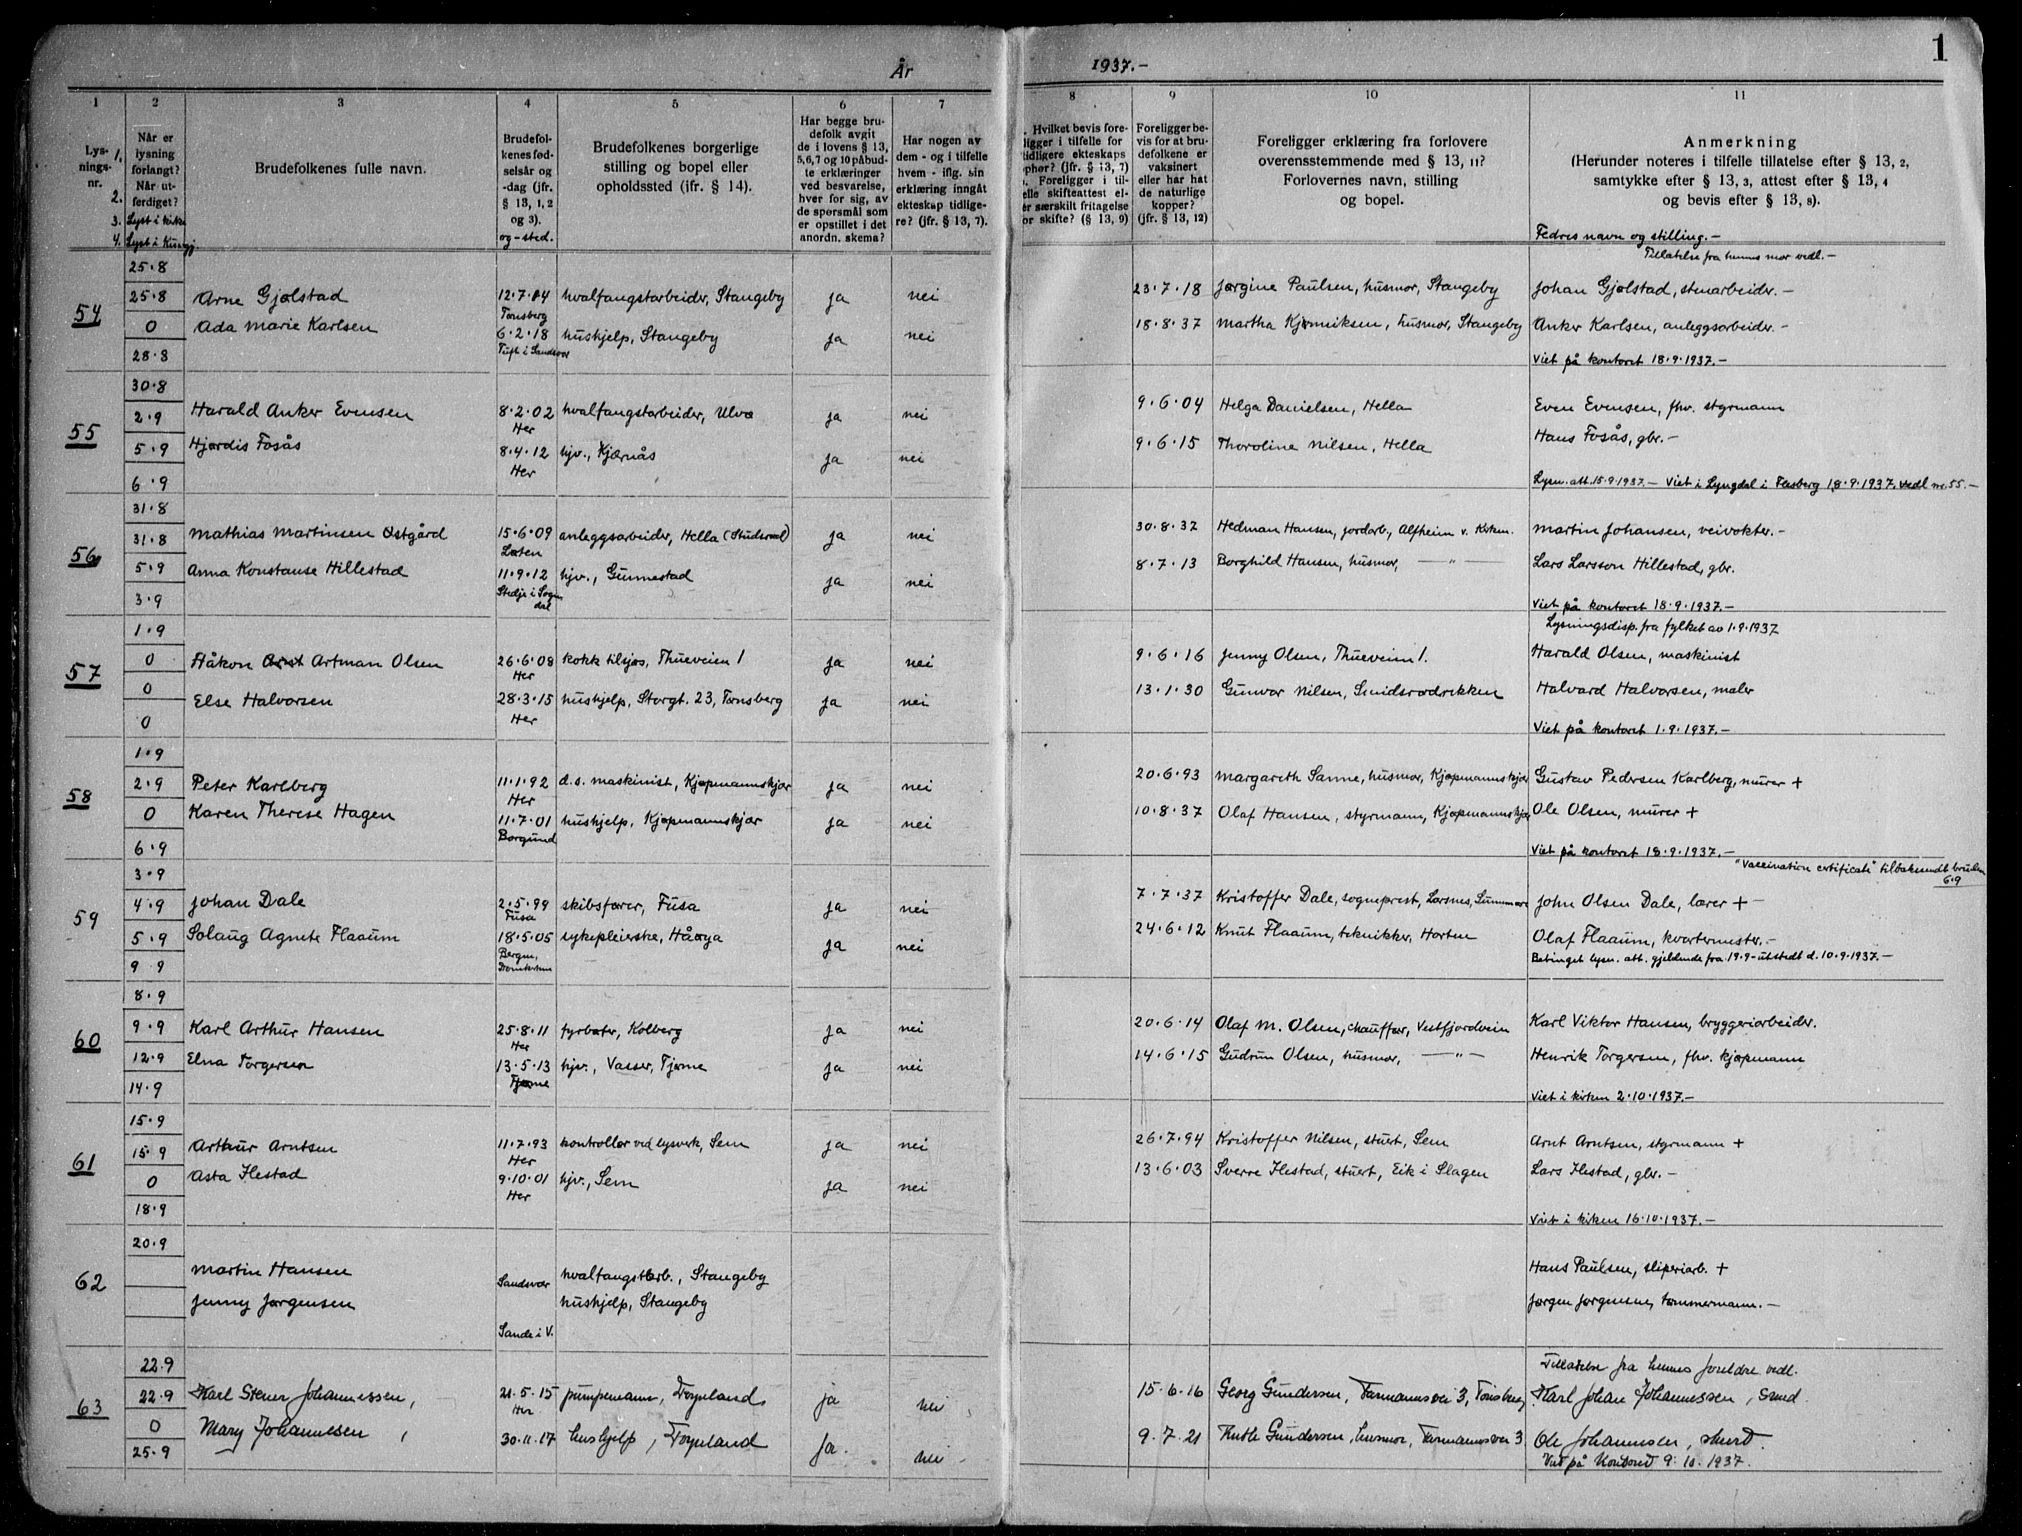 1
År 1937.-
1 2 3 4 5 6 7 8 9 10 11
Lys-
nings-
nr.
1.
2.
3.
4.
Når er
lysning
forlangt?
Når ut-
ferdiget?
Lyst i kirke
Brudefolkenes fulle navn.
Brudefol-
kenes fød-
selsår og
-dag (jfr.
§ 13, 1, 2
og 3).
og -sted.
Brudefolkenes borgerlige
stilling og bopel eller
opholdssted (jfr. § 14).
Har begge bru-
defolk avgit
de i lovens § 13,
5,6,7 og 10 påbud-
te erklæringer
ved besvarelse,
hver for sig, av
de spørsmål som
er opstillet i det
anordn. skema?
Har nogen av
dem - og i tilfelle
hvem - iflg. sin
erklæring inngåt
ekteskap tidlige-
re? (jfr. § 13, 7).
Hvilket bevis fore-
ligger i tilfelle for
tidligere ekteskaps
ophør? (jfr. § 13, 7)
Foreligger i til-
felle skifteattest el-
er særskilt fritagelse
or skifte? (§ 13, 9)
Foreligger be-
vis for at bru-
defolkene er
vaksinert
eller har hat
de naturlige
kopper?
(jfr. § 13, 12)
Foreligger erklæring fra forlovere
overensstemmende med § 13, 11?
Forlovernes navn, stilling
og bopel.
Anmerkning
(Herunder noteres i tilfelle tillatelse efter § 13, 2,
samtykke efter § 13, 3, attest efter § 13, 4
og bevis efter § 13, 8).
Fedres navn og stilling.-
Tillatelse fra hennes mor vedl.-
54
25.8
25.8
0
28.8
Arne Gjølstad 12.7.14 Tønsberg hvalfangstarbeider, Stangeby ja nei 23.7.18 Jørgine Paulsen, husmor, Stangeby Johan Gjølstad, stenarbeider.-
Ada Marie Karlsen 6.2.18 hushjelp, Stangeby ja nei 18.8.37 Martha husmor, Stangeby Anker Karlsen, anleggsarbeider.-
Viet på kontoret 18.9.1937.-
55
30.8
2.9
5.9
6.9
Harald Anker Evensen 8.2.02 Her hvalfangstarbeider, Ulvø ja nei 9.6.04 Helga Danielsen, Hella Even Evensen, fhv. styrmann
Hjørdis Fosås 8.4.12 Her hjv., Kjærnås ja nei 9.6.15 Thoroline Nilsen, Hella Hans Fosås, gbr.-
Lysn.att. 15.9.1937.- Viet i Lyngdal i Flesberg 18.9.1937. vedl nr. 55.-
56
31.8
31.8
5.9
3.9
Mathias Martinsen Østgård 15.6.09 Løten anleggsarbeider, Hella ja nei 30.8.32 Hedman Hansen, jordarb., Alfheim v. Kirken. Martin Johansen, veivokter.-
Anna Konstanse Hillestad 11.9.12 Stedje i Sogn dal hjv., Gunnestad ja nei 8.7.13 Borghild Hansen, husmor, — " — Lars Larsson Hillestad, gbr.
Viet på kontoret 18.9.1937.-
57
1.9
0
0
0
Lysningsdisp. fra fylket av 1.9.1937
Håkon Artman Olsen 26.6.08 Her kokk tilsjøs, Thueveien 1 ja nei 9.6.16 Jenny Olsen, Thueveien 1. Harald Olsen, maskinist
Else Halvorsen 28.3.15 Her hushjelp, Storgt. 23, Tønsberg ja nei 13.1.30 Gunvor Nilsen, Smidsrødvikken Halvard Halvorsen, maler
Viet på kontoret 1.9.1937.-
58
1.9
2.9
0
6.9
Peter Karlberg 11.1.92 Her d.s. maskinist, Kjøpmannskjær ja nei 20.6.93 Margareth Sanne, husmor, Kjøpmannskjær Gustav Pedersen Karlberg, murer +
Karen Therese Hagen 11.7.01 Borgund hushjelp, Kjøpmannskjær ja nei 10.8.37 Olaf Hansen, styrmann, Kjøpmannskjær Ole Olsen, murer +
Viet på kontoret 18.9.1937.-
59
3.9
4.9
5.9
9 9
"Vaccination certificate" tilbakesendt bruden 6.9
Johan Dale 2.5.99 Fusa skibsfører, Fusa ja nei 7.7.37 Kristoffer Dale, sogneprest, Larsnes, John Olsen Dale, lærer +-
Solaug Agnete Flaaum 18.5.05 Bergen, sykepleierske, Håøya ja nei 24.6.12 Knut Flaaum, tekniker, Horten Olaf Flaaum, kvartermester.-
Betinget lysn. att. gjeldende fra 19.9- utstedt d. 10.9.1937.-
60
8.9
9.9
12.9
14.9
Karl Arthur Hansen 25.8.11 Her fyrbøter, Kolberg ja nei 20.6.14 Olaf M. Olsen, chauffør, Vestfjordveien Karl Viktor Hansen, bryggeriarbeider.
Elna Torgersen 13.5.13 Tjøme hjv., Vasser, Tjøme ja nei 14.6.15 Gudrun Olsen, husmor, — " — Henrik Torgersen, fhv. kjøpmann
Viet i kirken 2.10.1937.-
61
15.9
15.9
0
18.9
Arthur Arntsen 11.7.93 Her kontrollør ved lysverk, Sem ja nei 26.7.94 Kristoffer Nilsen, stuert, Sem Arnt Arntsen, styrmann +
Asta Ilestad 9.10.01 Her hjv., Sem ja nei 13.6.03 Sverre Ilestad, stuert, Eik i Slagen Lars Ilestad, gbr.-
Viet i kirken 16.10.1937.-
62
20.9
Martin Hansen Sandsvær hvalfangstarb., Stangeby Hans Paulsen, sliperiarb. +
Jenny Jørgensen Sande i V. hushjelp, Stangeby Jørgen Jørgensen, tømmermann.-
63
22.9
22.9
0
25.9
Tillatelse fra hennes foreldre vedl.
Karl Steuer Johannessen, 21.5.15 Her pumpemann, Føynland, ja nei 15.6.16 Georg Gundersen, Farmannsvei 3, Tønsberg Karl Johan Johannessen, smed.
Mary Johannesen, 30.11.17 hushjelp, Føynland ja. nei 9.7.21 Ruth Gundersen, husmor, Farmannsvei 3 Ole Johannesen, stuert.
Viet på Kontoret 9.10.1937.